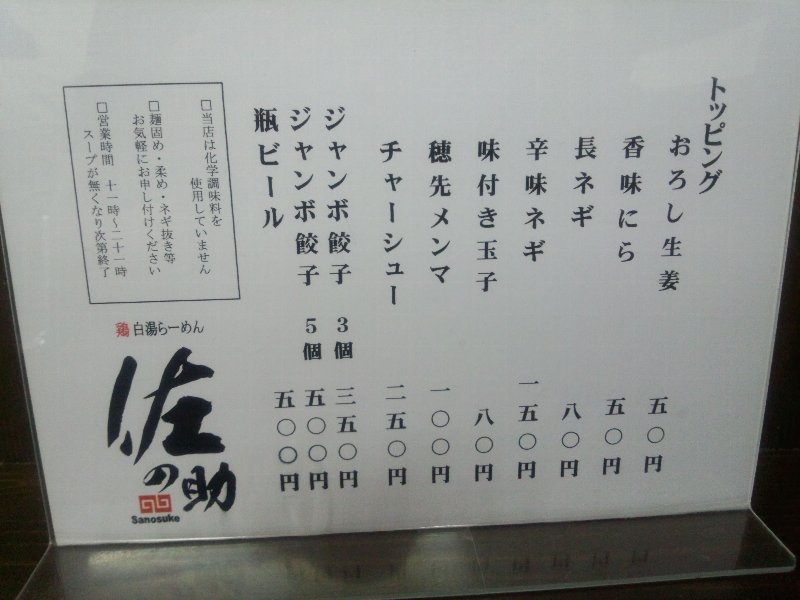 トッピング
おろし生姜 五〇円
香味にら 五〇円
長ネギ 八〇円
辛味ネギ 一五〇円
味付き玉子 八〇円
穂先メンマ 一〇〇円
チャーシュー 二五〇円
ジャンボ餃子 3個 三五〇円
ジャンボ餃子 5個 五〇〇円
瓶ビール 五〇〇円
□当店は化学調味料を
使用していません
□麺固め・柔め・ネギ抜き等
お気軽にお申し付けください
□営業時間 十一時〜二十一時
スープが無くなり次第終了
鶏白湯らーめん
佐の助
Sanosuke